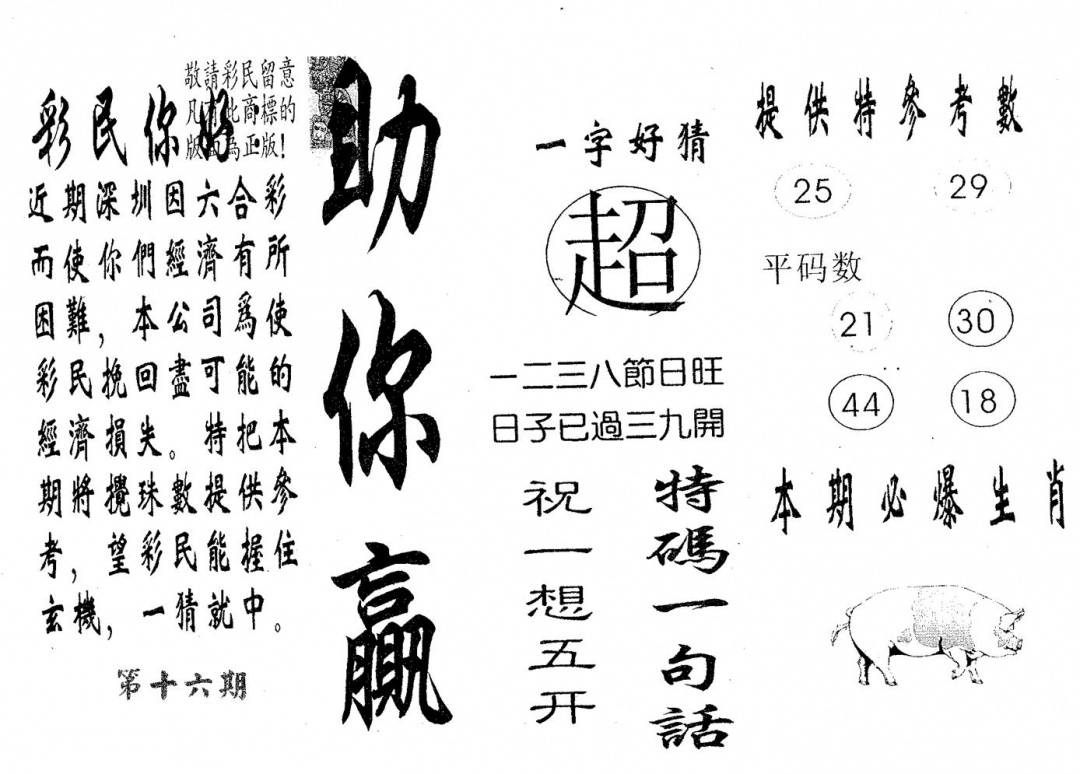 敬請彩民留意
凡有此商標的
版面為正版!
彩民你好
近期深圳因六合彩
而使你們經濟有所
困難，本公司爲使
彩民挽回盡可能的
經濟損失。特把本
期將攪珠數提供參
考，望彩民能握住
玄機，一猜就中。
第十六期
助你贏
一字好猜
超
一二三八節日旺
日子已過三九開
特碼一句話
祝一想五开
提供特參考數
25 29
平码数
21 30
44 18
本期必爆生肖